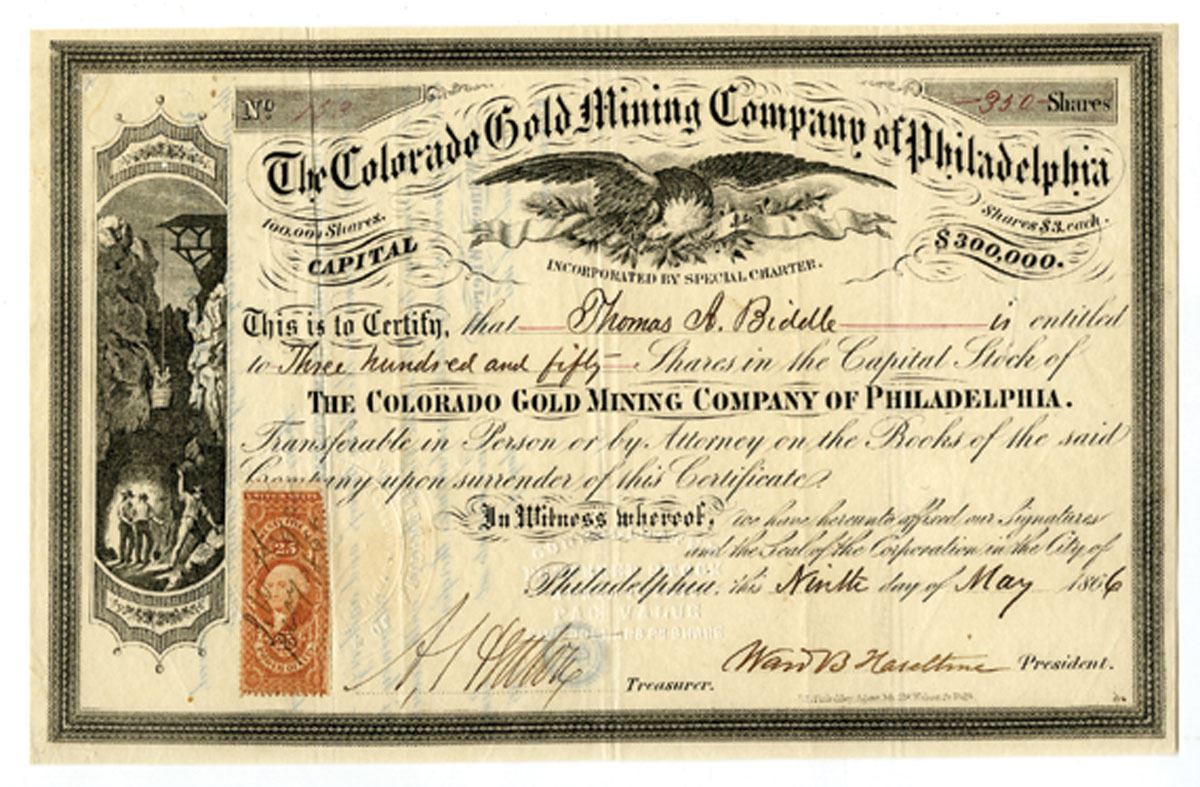 No 152
350 Shares
The Colorado Gold Mining Company of Philadelphia
100,000 Shares.
Shares $3. each.
CAPITAL
$300,000.
INCORPORATED BY SPECIAL CHARTER.
This is to Certify, that Thomas A. Biddle is entitled
to Three hundred and fifty Shares in the Capital Stock of
THE COLORADO GOLD MINING COMPANY OF PHILADELPHIA.
Transferable in Person or by Attorney on the Books of the said
Company upon surrender of this Certificate.
In Witness whereof, we have hereunto affixed our Signatures
and the Seal of the Corporation in the City of
Philadelphia, this Ninth day of May 1866
25
PAR VALUE
Ward B Haseltine President.
Treasurer.